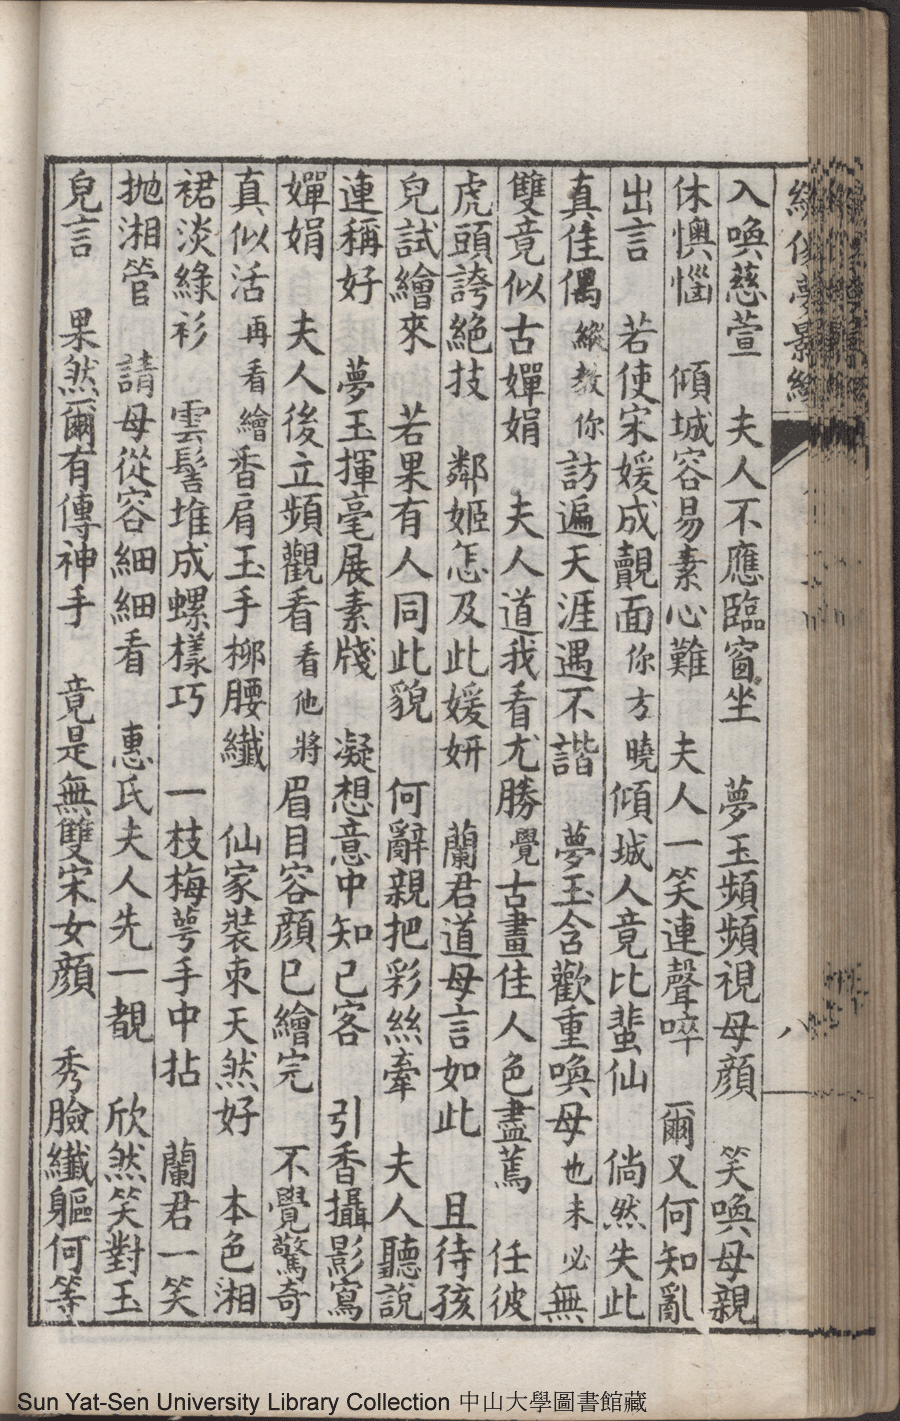 入喚慈萱　夫人不應臨窗坐　夢玉頻頻視母顏　笑喚母親
休懊惱　傾城容易素心難　夫人一笑連聲啐　爾又何知亂
出言　若使宋媛成覿面你方曉傾城人竟比蜚仙　倘然失此
真佳偶縱教你訪遍天涯遇不諧　夢玉含歡重喚母也未必無
雙竟似古嬋娟　夫人道我看尤勝覺古畫佳人色盡蔫　任彼
虎頭誇絕技　鄰姬怎及此媛妍　蘭君道母言如此　且待孩
兒試繪來　若果有人同此貌　何辭親把彩絲牽　夫人聽說
連稱好　夢玉揮毫展素牋　凝想意中知己客　引香攝影寫
嬋娟　夫人後立頻觀看看他將眉目容顏已繪完　不覺驚奇
真似活再看繪香肩玉手柳腰纖　仙家裝束天然好　本色湘
裙淡綠衫　雲髻堆成螺樣巧　一枝梅萼手中拈　蘭君一笑
拋湘管　請母從容細細看　惠氏夫人先一覩　欣然笑對玉
兒言　果然爾有傳神手　竟是無雙宋女顏　秀臉纖軀何等
八
Sun Yat-Sen University Library Collection 中山大學圖書館藏